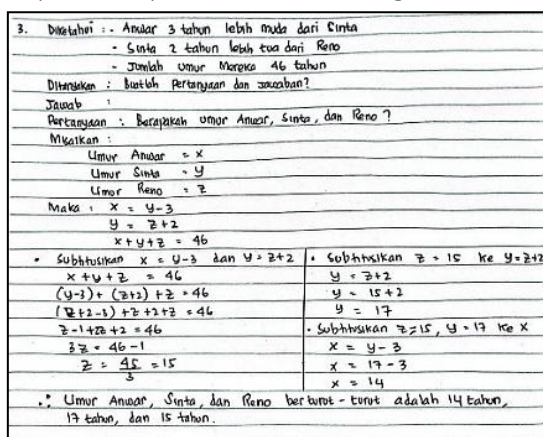 3. Diketahui : - Anwar 3 tahun lebih muda dari Sinta
- Sinta 2 tahun lebih tua dari Reno
- Jumlah umur Mereka 46 tahun
Ditanyakan : Buatlah pertanyaan dan jawaban?
Jawab :
Pertanyaan : Berapakah umur Anwar, Sinta, dan Reno ?
Misalkan :
Umur Anwar = x
Umur Sinta = y
Umur Reno = z
Maka : x = y-3
y = z+2
x+y+z = 46
• Subtitusikan x = y-3 dan y = z+2
x+y+z = 46
(y-3) + (z+2) + z = 46
(z+2-3) + z+2+z = 46
z-1+2z+2 = 46
3z = 46-1
z = 45/3 = 15
• Subtitusikan z = 15 ke y=z+2
y = z+2
y = 15+2
y = 17
• Subtitusikan z=15, y=17 ke x
x = y-3
x = 17-3
x = 14
∴ Umur Anwar, Sinta, dan Reno berturut-turut adalah 14 tahun,
17 tahun, dan 15 tahun.